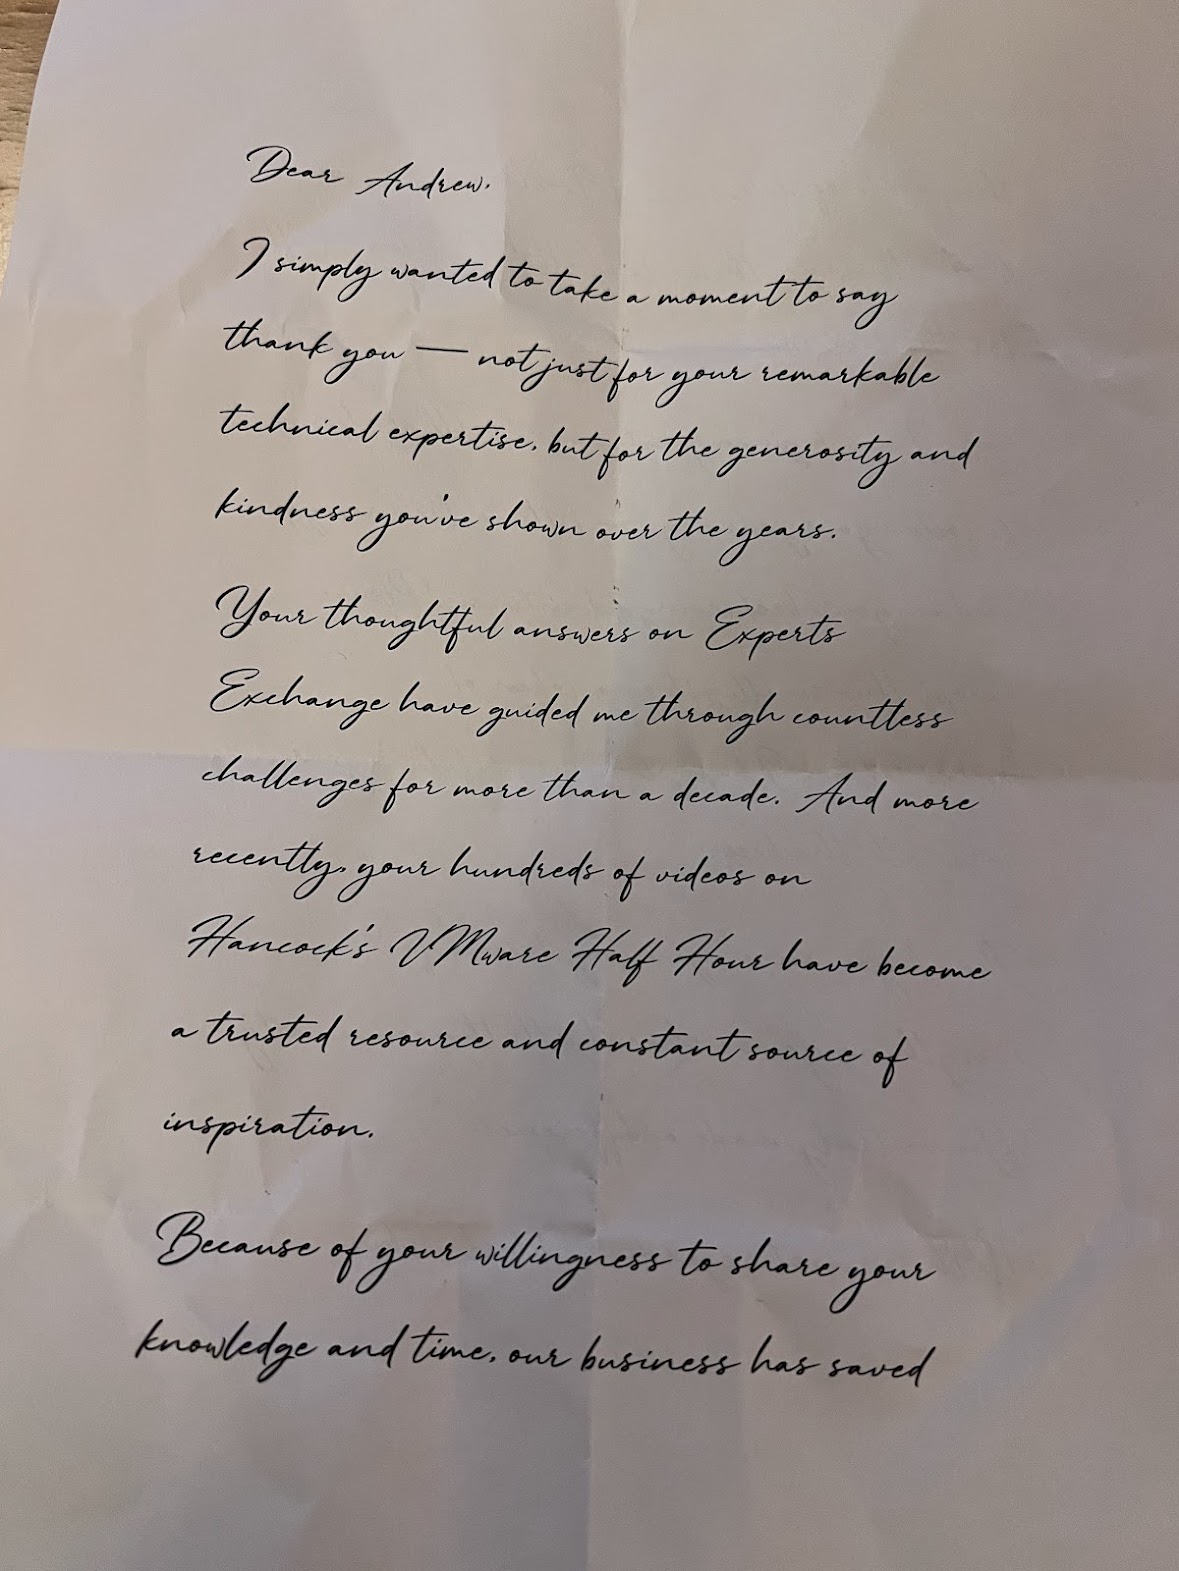 Dear Andrew,
I simply wanted to take a moment to say
thank you — not just for your remarkable
technical expertise, but for the generosity and
kindness you've shown over the years.
Your thoughtful answers on Experts
Exchange have guided me through countless
challenges for more than a decade. And more
recently, your hundreds of videos on
Hancock's VMware Half Hour have become
a trusted resource and constant source of
inspiration.
Because of your willingness to share your
knowledge and time, our business has saved